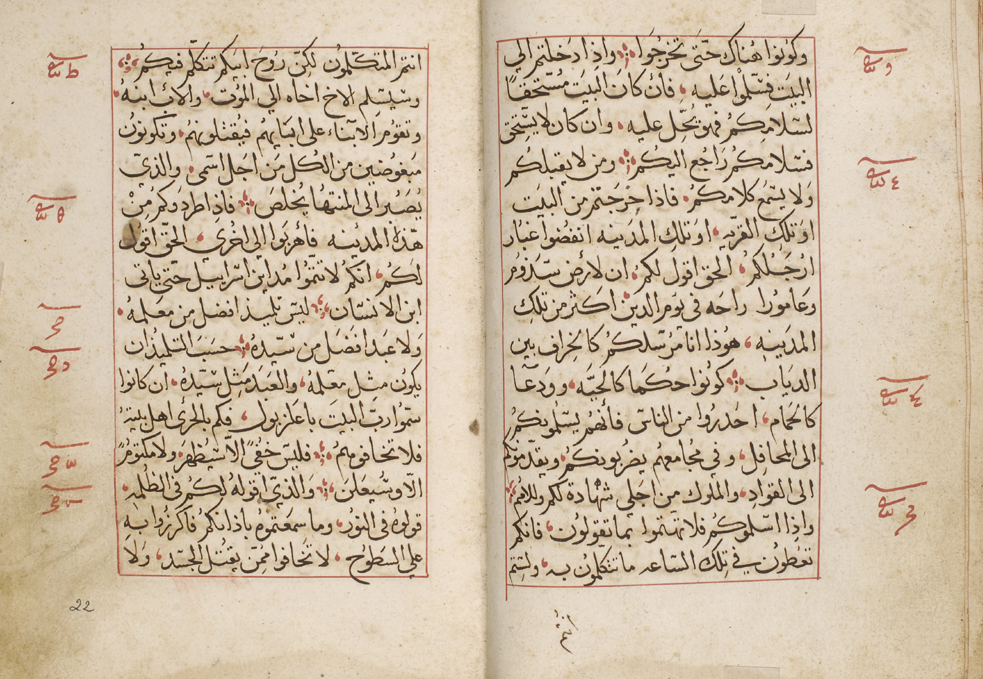 وكونوا هناك حتى تخرجوا واذا دخلتم الي
البيت فسلموا عليه فان كان البيت مستحقا
لسلامكم فهو يحل عليه وان كان لا يستحق
فسلامكم راجع اليكم ومن لا يقبلكم
ولا يسمع كلامكم فاذا خرجتم من البيت
او تلك القريه او تلك المدينه انفضوا غبار
ارجلكم الحق اقول لكم ان لارض سدوم
وعامورا راحه في يوم الدين اكثر من تلك
المدينه هودا انا مرسلكم كالخراف بين
الدياب كونوا حكما كالحيه وودعا
كالحمام احدروا من الناس فانهم يسلمونكم
الى المحافل وفي مجامعهم يضربونكم ويقدمونكم
الى القواد والملوك من اجلي شهادة لكم وللامم
واذا اسلموكم فلا تهتموا بما تقولون فانكم
تعطون في تلك الساعه ما تتكلمون به ولستم
انتم المتكلمون لكن روح ابيكم تتكلم فيكم
وسيسلم الاخ اخاه الي الموت والاب ابنه
وتقوم الابناء على ابايهم فيقتلونهم وتكونون
مبغوضين من الكل من اجل اسمي والذي
يصبر الى المنتها يخلص فاذا طردوكم من
هذه المدينه فاهربوا الي اخري الحق اقول
لكم انكم لا تتموا مداين اسراييل حتى ياتى
ابن الانسان ليس تلميذ افضل من معلمه
ولا عبد افضل من سيده حسب التلميذ ان
يكون مثل معلمه والعبد مثل سيده ان كانوا
سموا رب البيت باعلزبول فكم بالحرى اهل بيته
فلا تخافوهم فليس خفي الا سيظهر ولا مكتوم
الا وسيعلن والذي اقوله لكم في الظلمه
قولوه في النور وما سمعتموه باذانكم فاكرزوا به
علي السطوح لا تخافوا ممن يقتل الجسد ولا
22